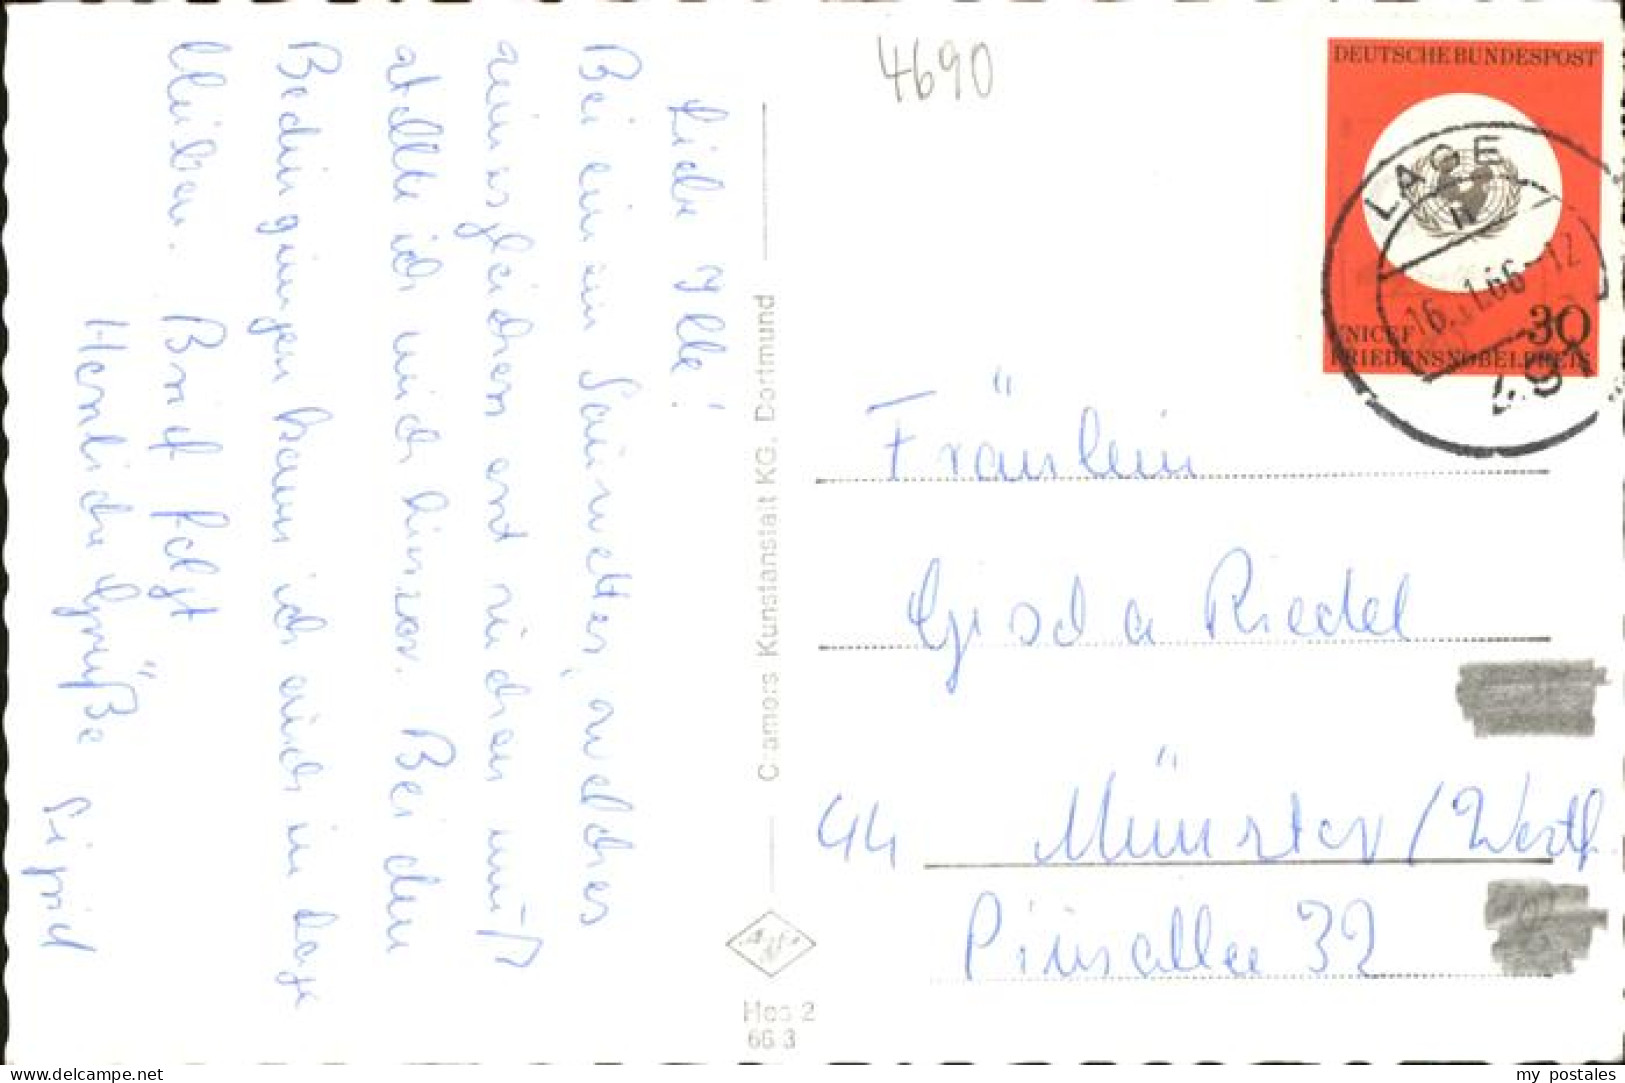 4690
DEUTSCHE BUNDESPOST
LAGE
16. 1.66-12
30
UNICEF
FRIEDENSNOBELPREIS
49
Liebe Ille!
Bei einem Sauwetter, welches
seinesgleichen erst suchen muß
stellte ich mich hier vor. Bei den
Bedingungen kann ich auch in Lage
bleiben. Brief folgt
Herzliche Grüße
Sigrid
Cramers Kunstanstalt KG, Dortmund
Hos 2
66 3
Fräulein
Gisela Riedel
44 Münster/Westf.
Piusallee 32
www.delcampe.net
my_postales